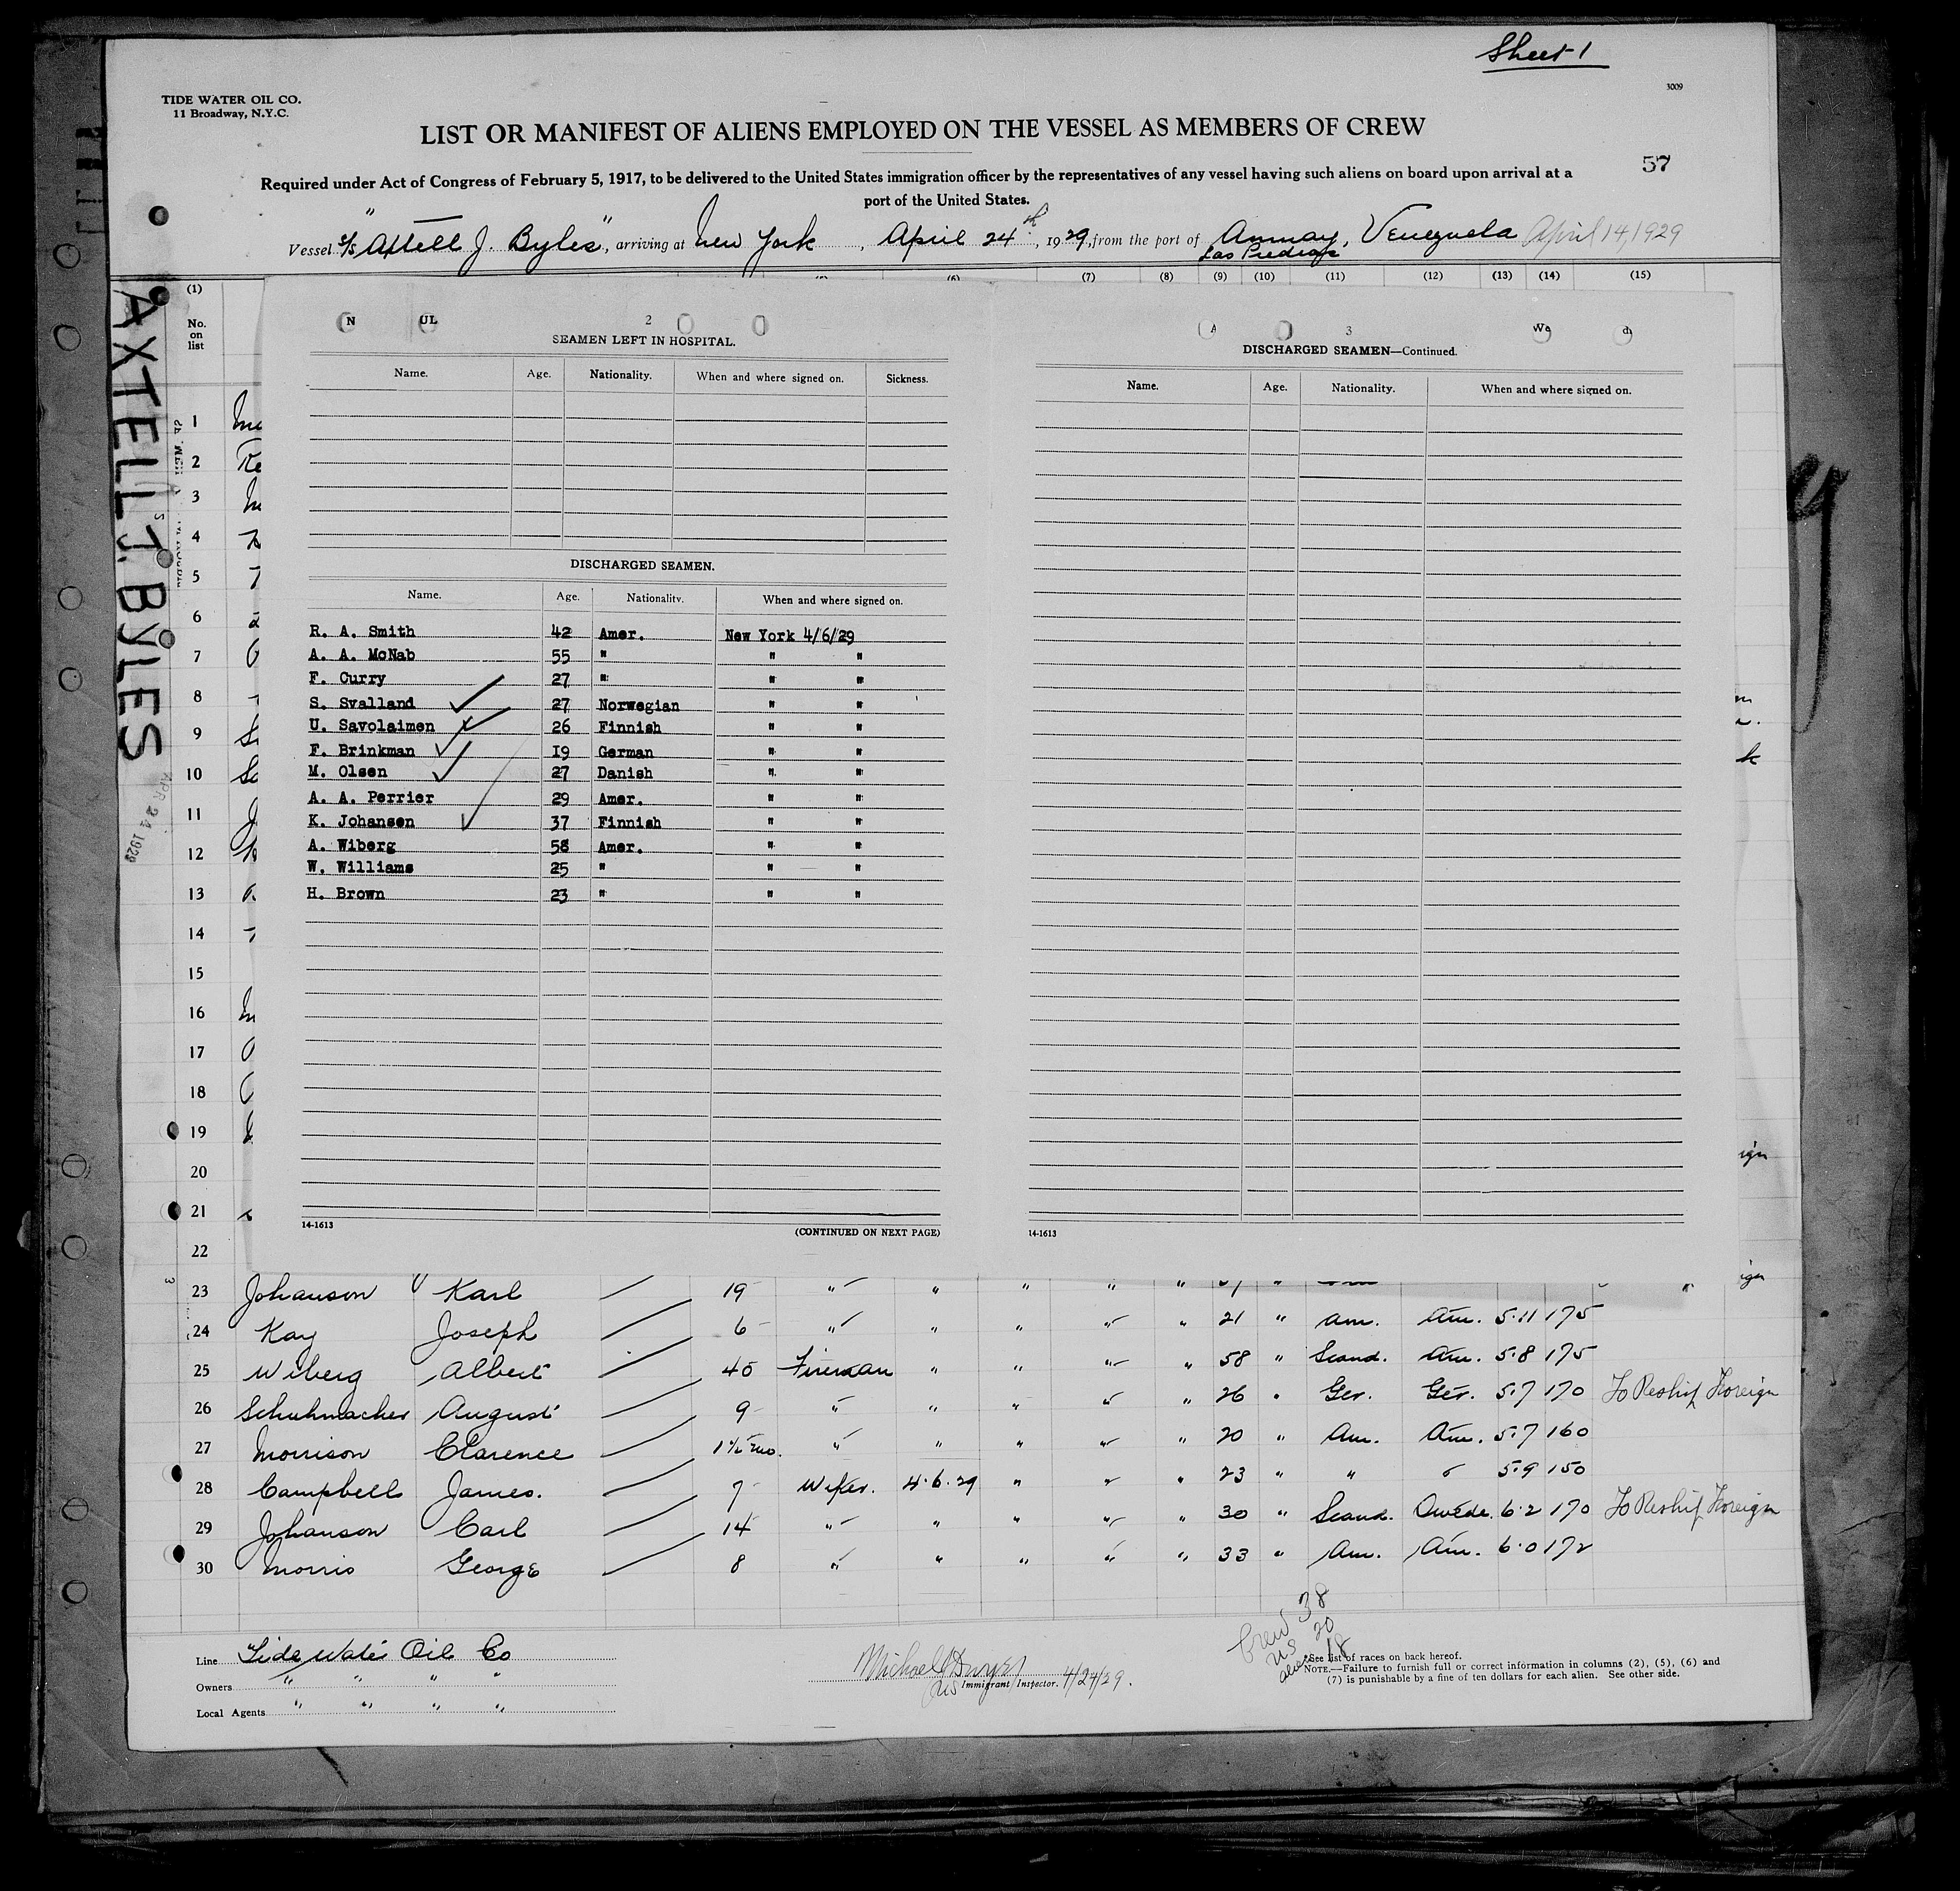 Sheet 1
3009
TIDE WATER OIL CO.
11 Broadway, N.Y.C.
LIST OR MANIFEST OF ALIENS EMPLOYED ON THE VESSEL AS MEMBERS OF CREW
57
Required under Act of Congress of February 5, 1917, to be delivered to the United States immigration officer by the representatives of any vessel having such aliens on board upon arrival at a
port of the United States.
Vessel S/S "Axtell J. Byles", arriving at New York, April 24th, 1929, from the port of Amuay, Venezuela April 14, 1929
Las Piedras
(1) (6) (7) (8) (9) (10) (11) (12) (13) (14) (15)
No. on list
AXTELL J. BYLES
APR 24 1929
N UL 2
SEAMEN LEFT IN HOSPITAL.
Name. Age. Nationality. When and where signed on. Sickness.
DISCHARGED SEAMEN.
Name. Age. Nationality. When and where signed on.
R. A. Smith 42 Amer. New York 4/6/29
A. A. McNab 55 " " "
F. Curry 27 " " "
S. Svalland 27 Norwegian " "
U. Savolaimen 26 Finnish " "
F. Brinkman 19 German " "
M. Olsen 27 Danish " "
A. A. Perrier 29 Amer. " "
K. Johansen 37 Finnish " "
A. Wiberg 58 Amer. " "
W. Williams 25 " " "
H. Brown 23 " " "
14-1613 (CONTINUED ON NEXT PAGE)
A 3 We d
DISCHARGED SEAMEN—Continued.
Name. Age. Nationality. When and where signed on.
14-1613
1
2
3
4
5
6
7
8
9
10
11
12
13
14
15
16
17
18
19
20
21
22
23 Johanson Karl 19 " " " " "
24 Kay Joseph 6 " " " " " 21 " Am. Am. 5.11 175
25 Wiberg Albert 40 Fireman " " " " 58 " Scand. Am. 5.8 175
26 Schuhmacher August 9 " " " " " 26 " Ger. Ger. 5.7 170 To Reship Foreign
27 Morrison Clarence 1½ mo. " " " " " 20 " Am. Am. 5.7 160
28 Campbell James. 7 Wiper. 4.6.29 " " " 23 " " " 5.9 150
29 Johanson Carl 14 " " " " " 30 " Scand. Swede. 6.2 170 To Reship Foreign
30 Morris George 8 " " " " " 33 " Am. Am. 6.0 172
Crew 38
US 20
aliens 18
Line Tide Water Oil Co
Owners " " " "
Local Agents " " " "
Michael Dwyer
Immigrant Inspector. 4/24/29.
See list of races on back hereof.
NOTE.—Failure to furnish full or correct information in columns (2), (5), (6) and
(7) is punishable by a fine of ten dollars for each alien. See other side.